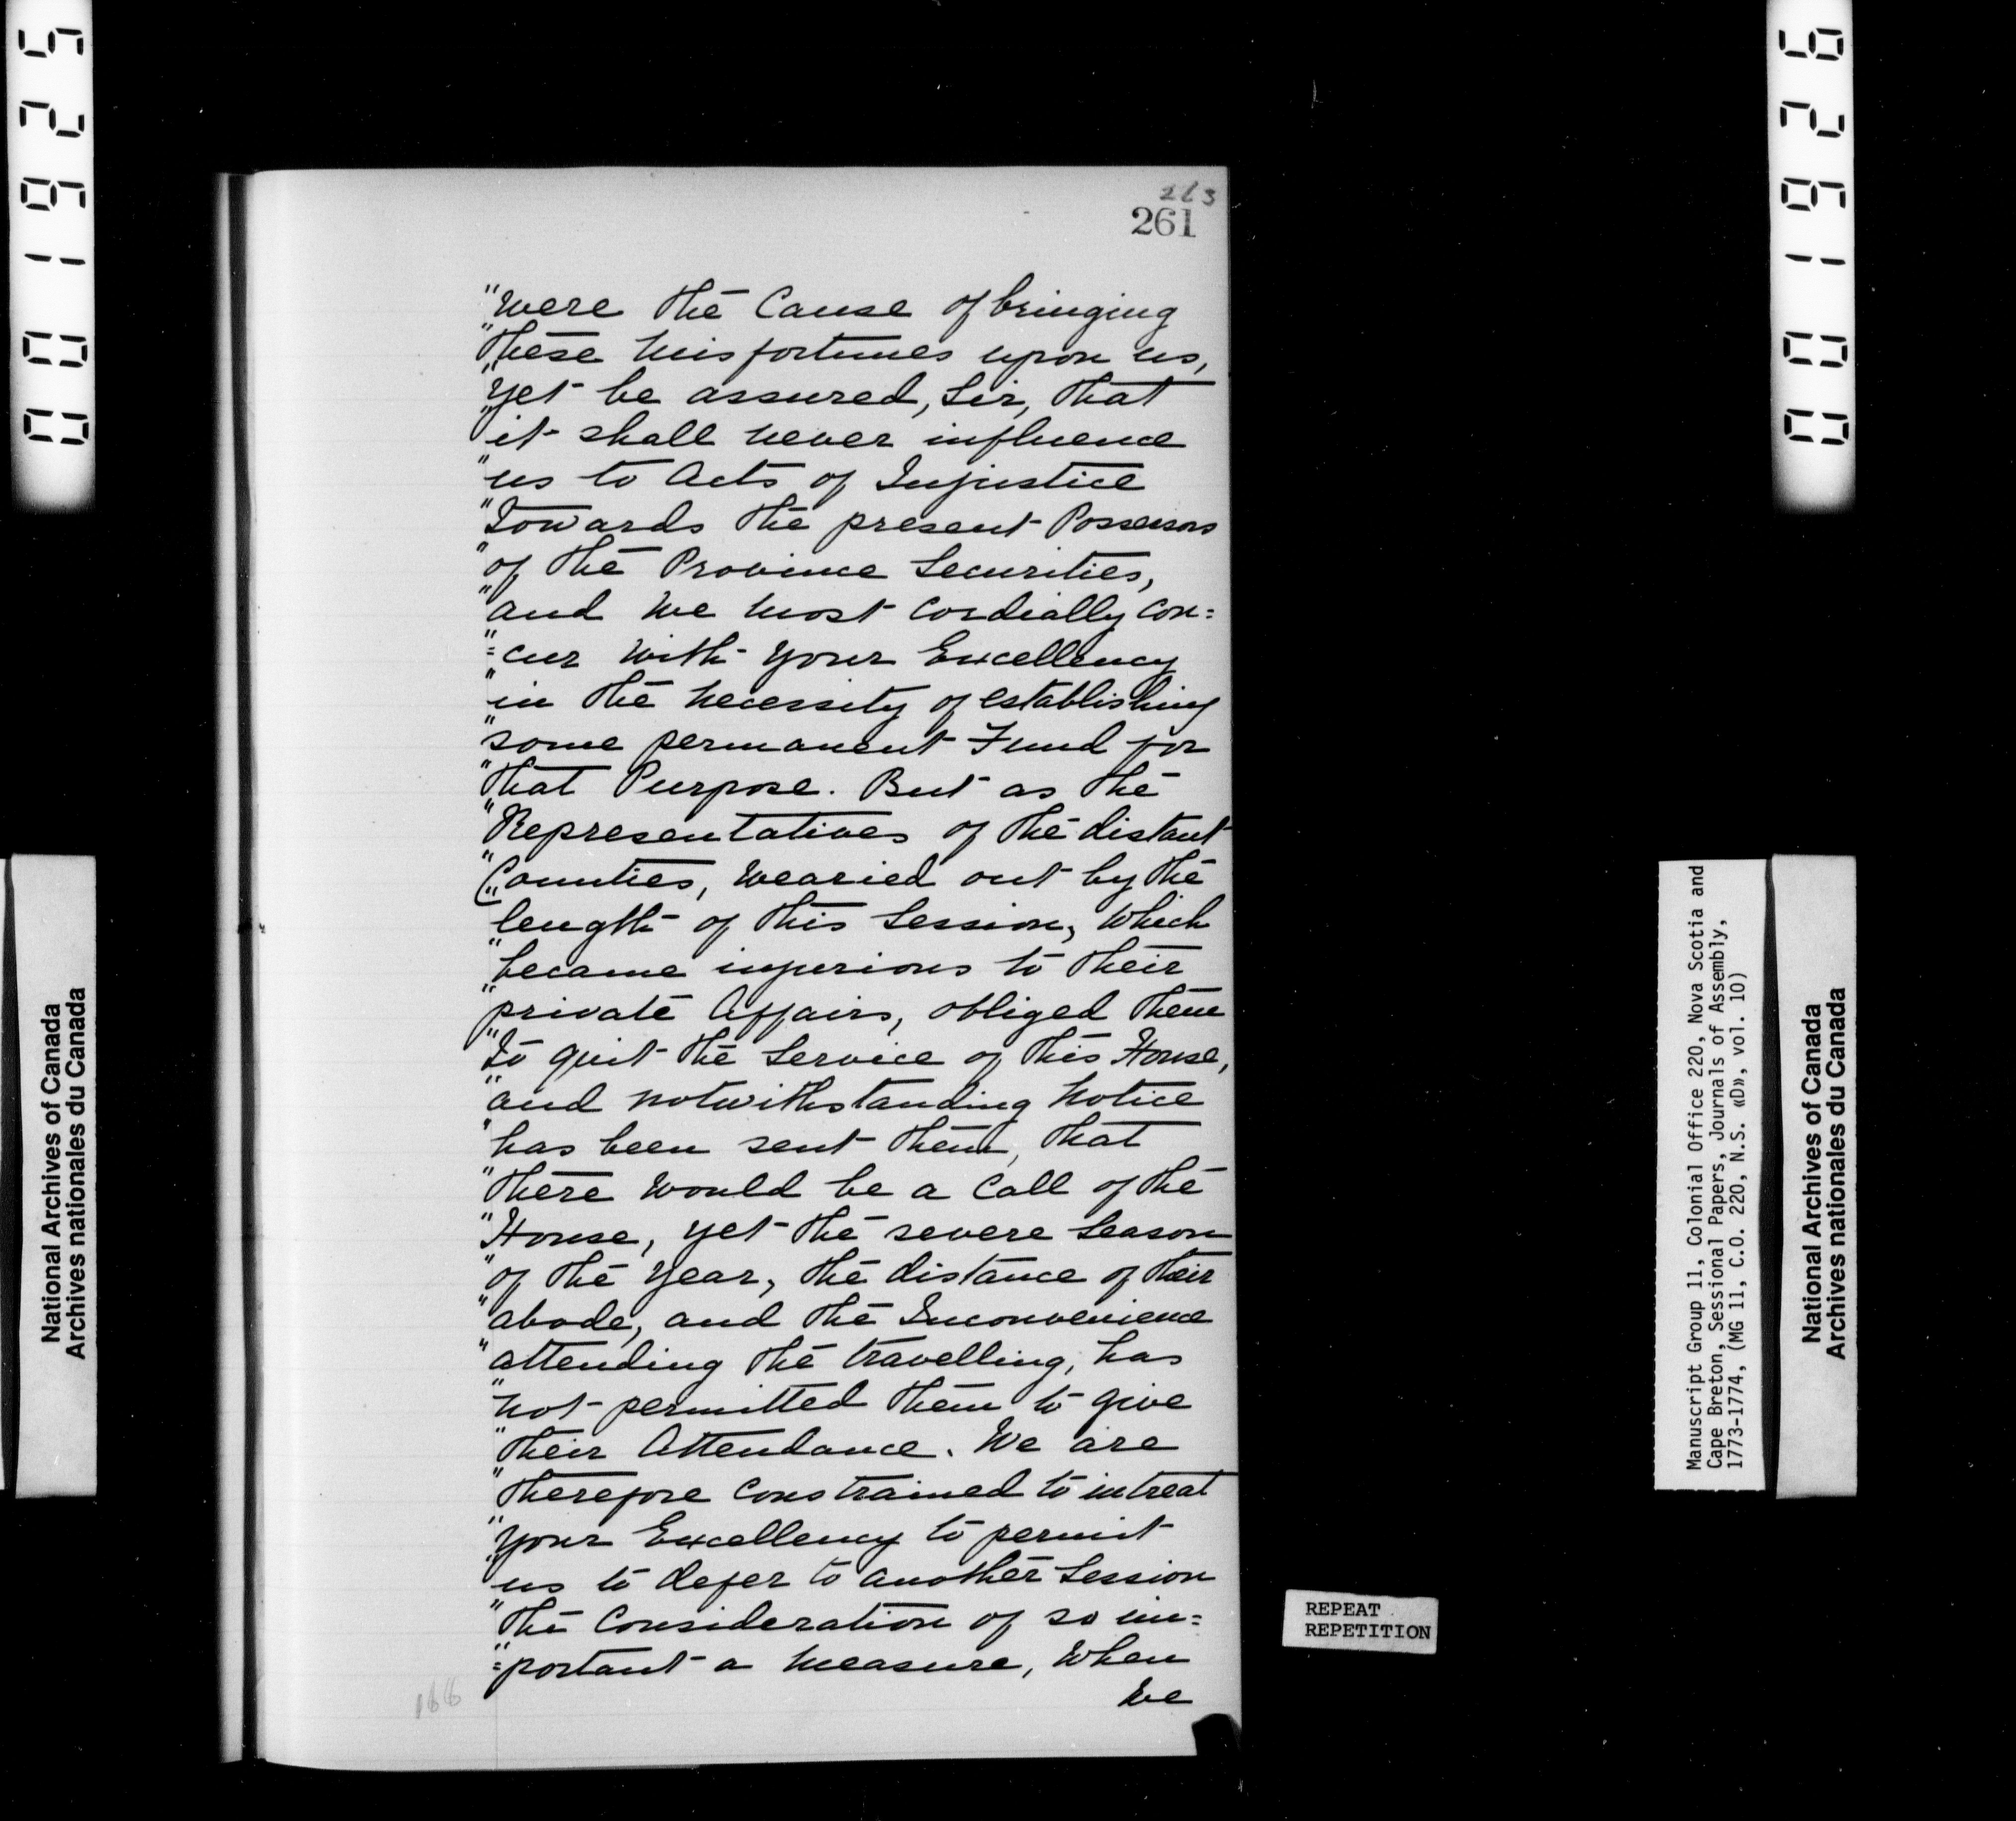 001925
001926
263
261
"Were the Cause of bringing
"these misfortunes upon us,
"yet be assured, Sir, that
"it shall never influence
"us to Acts of Injustice
"Towards the present Possessors
"of the Province Securities,
"and We most cordially con=
"=cur with your Excellency
"in the necessity of establishing
"some permanent Fund for
"that Purpose. But as the
"Representatives of the distant
"Counties, wearied out by the
"length of this Session, which
"became injurious to their
"private Affairs, obliged them
"To quit the Service of this House,
"and notwithstanding Notice
"has been sent them, that
"there would be a Call of the
"House, yet the severe Season
"of the Year, the distance of their
"abode, and the Inconvenience
"attending the travelling, has
"not permitted them to give
"their Attendance. We are
"therefore constrained to intreat
"your Excellency to permit
"us to defer to another Session
"the Consideration of so im=
"=portant a Measure, When
We
166
National Archives of Canada
Archives nationales du Canada
Manuscript Group 11, Colonial Office 220, Nova Scotia and
Cape Breton, Sessional Papers, Journals of Assembly,
1773-1774, (MG 11, C.O. 220, N.S. «D», vol. 10)
National Archives of Canada
Archives nationales du Canada
REPEAT
REPETITION